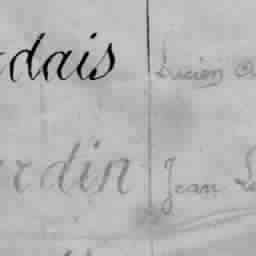 dais Lucien
rdin Jean